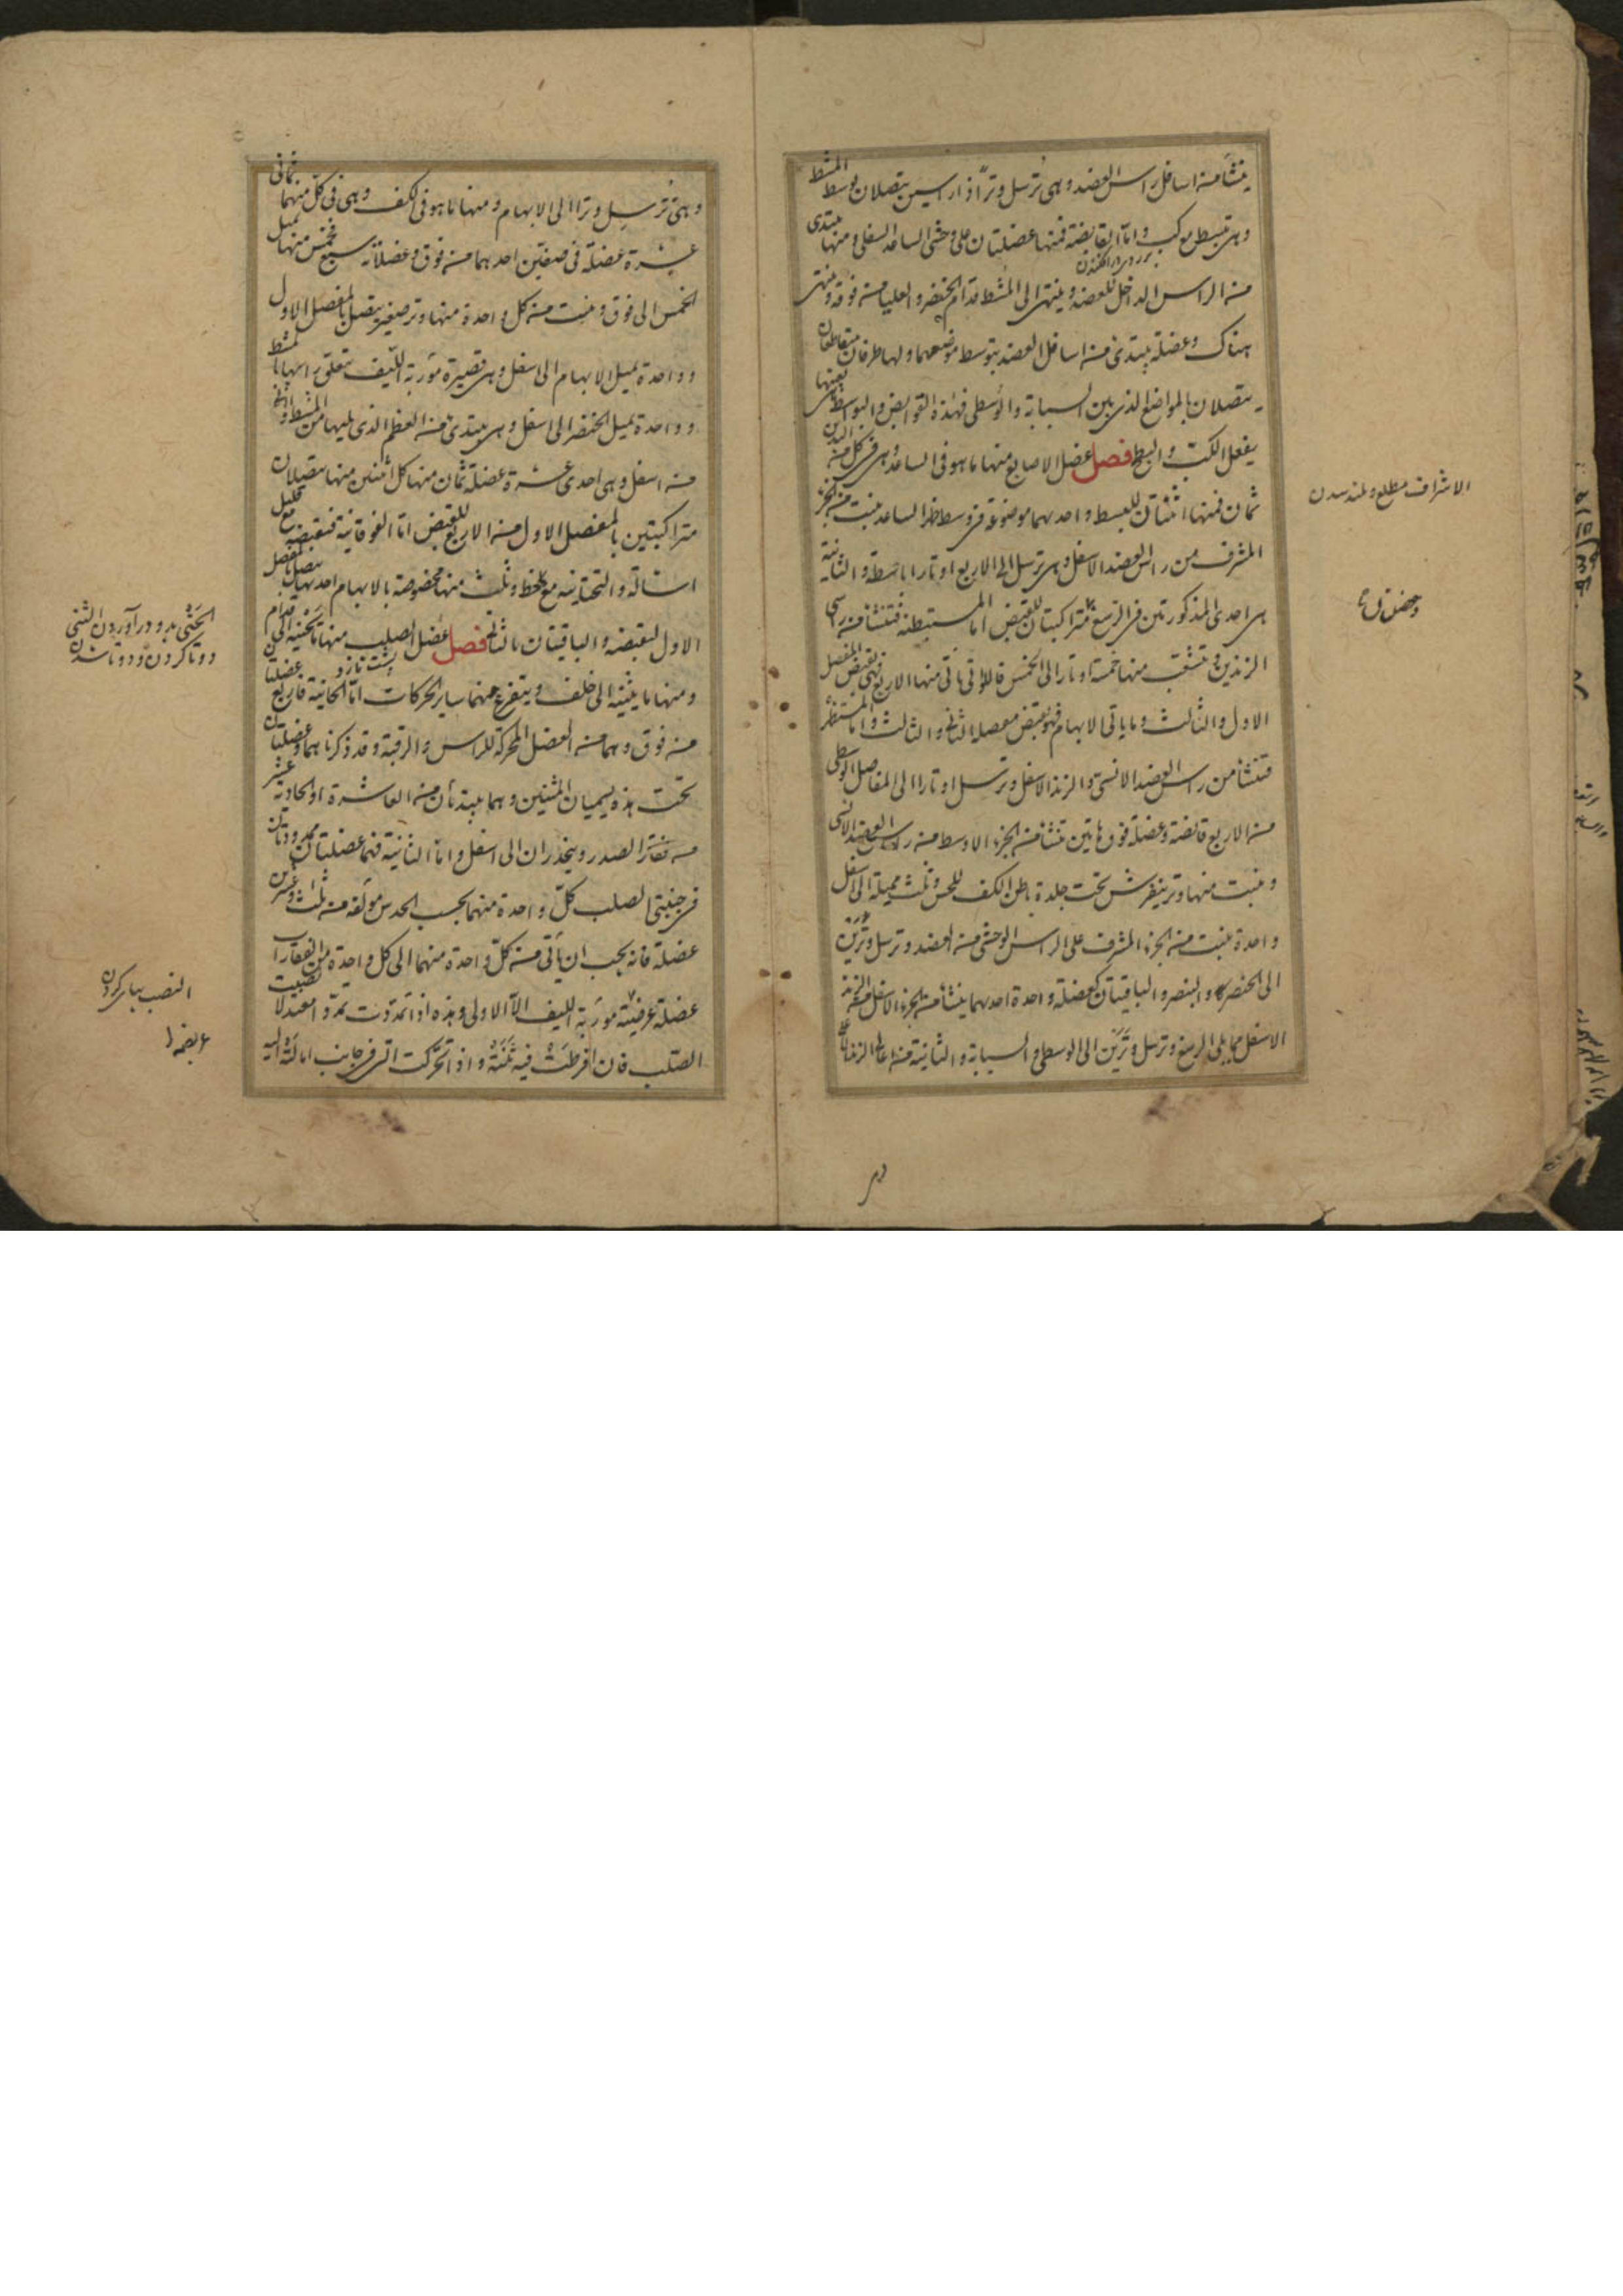 ينشأ من اسافل راس العضد وهى ترسل وتراً ذا راسين يتصلان بوسط المشط
وهى تبسط مع كب واما القابضة فمنها عضلتان على وحشى الساعد السفلى ومنها يبتدى
من الراس الداخل للعضد وينتهى الى المشط قدام الخنصر والعليا من فوقه وينتهى
هناك وعضلة يبتدئ من اسافل العضد يتوسط موضعهما ولها طرفان متقاطعان
يتصلان بالمواضع الذى بين السبابة والوسطى فهذه القوابض والبواسط
يفعل الكب والبطح فصل عضل الاصابع منها ما هو فى الساعد وهى فى كل من اليدين
ثمان فمنها اثنتان للبسط واحدهما موضوعة فى وسط ظهر الساعد ينبت من الجزء
المشرف من راس العضد الاسفل وهى ترسل الى الاربع اوتارا باسطة والثانية
هى احدى المذكورتين فى الرسغ متراكبتان للقبض اما المستبطنة فتنشأ من راسى
الزندين وتتشعب منها خمسة اوتار الى الخمس فاللواتى تاتى منها الاربع فهى تقبض المفصل
الاول والثالث وما ياتى الابهام فهو يقبض مفصله الثانى والثالث واما المستظهر
فتنشأ من راس العضد الانسى والزند الاسفل وترسل اوتارا الى المفاصل الوسطى
من الاربع قابضة وعضلة فوق هاتين تنشأ من الجزء الاوسط من راس العضد الانسى
وينبت منها وتر ينفرش تحت جلدة باطن الكف للحس وثلث مميلة الى اسفل
واحدة ينبت من الجزء المشرف على الراس الوحشى من العضد وترسل وترين
الى الخنصر والبنصر والباقيتان كعضلة واحدة احدهما ينشأ من الجزء الاسفل من الزند
الاسفل مما يلى الرسغ وترسل وترين الى الوسطى والسبابة والثانية من اعالى الزند
الاشراف مطلع و بلند شدن
وهى ترسل وترا الى الابهام ومنها ما هو فى الكف وهى فى كل منهما ثمانى
عشرة عضلة فى صفين احدهما من فوق وعضلاته سبع فخمس منها تميل
الخمس الى فوق وينبت من كل واحدة منها وتر صغير يتصل بالمفصل الاول
وواحدة تميل الابهام الى اسفل وهى قصيرة موربة الليف يتعلق راسها بالمشط
وواحدة تميل الخنصر الى اسفل وهى يبتدئ من العظم الذى يليها من المشط
من اسفل وهى احدى عشرة عضلة ثمان منها كل اثنين منها يتصلان
متراكبتين بالمفصل الاول من الاربع للقبض اما الفوقانية فتقبضه مع قليل
اشالة والتحتانية مع حط وثلث منها مخصوصة بالابهام احدها يتصل بالمفصل
الاول لتقبضه والباقيتان بالثانى فصل عضل الصلب منها ما يحنيه الى قدام
ومنها ما يثنيه الى خلف ويتفرع عنهما ساير الحركات اما الحانية فاربع عضلتان
من فوق وهما من العضل المحركة للراس والرقبة وقد ذكرناهما وعضلتان
تحت هذه يسميان المثنيين وهما يبتدئان من العاشرة او الحادية عشر
من فقار الصدر وينحدران الى اسفل واما الثانية فهما عضلتان ممدودتان
فى جنبتى الصلب كل واحدة منهما بحسب الحدس مولفة من ثلث وعشرين
عضلة فانه يجب ان يأتى من كل واحدة منهما الى كل واحدة من الفقارات
عضلة عرضية موربة الليف الا الاولى وهذه اذا تمددت تمدد معتدلا نصبت
الصلب فان افرطت فيه ثنته واذا تحركت التى فى جانب امالته اليه
دوتا كردن و دوتا شدن
النصب بپاى كردن